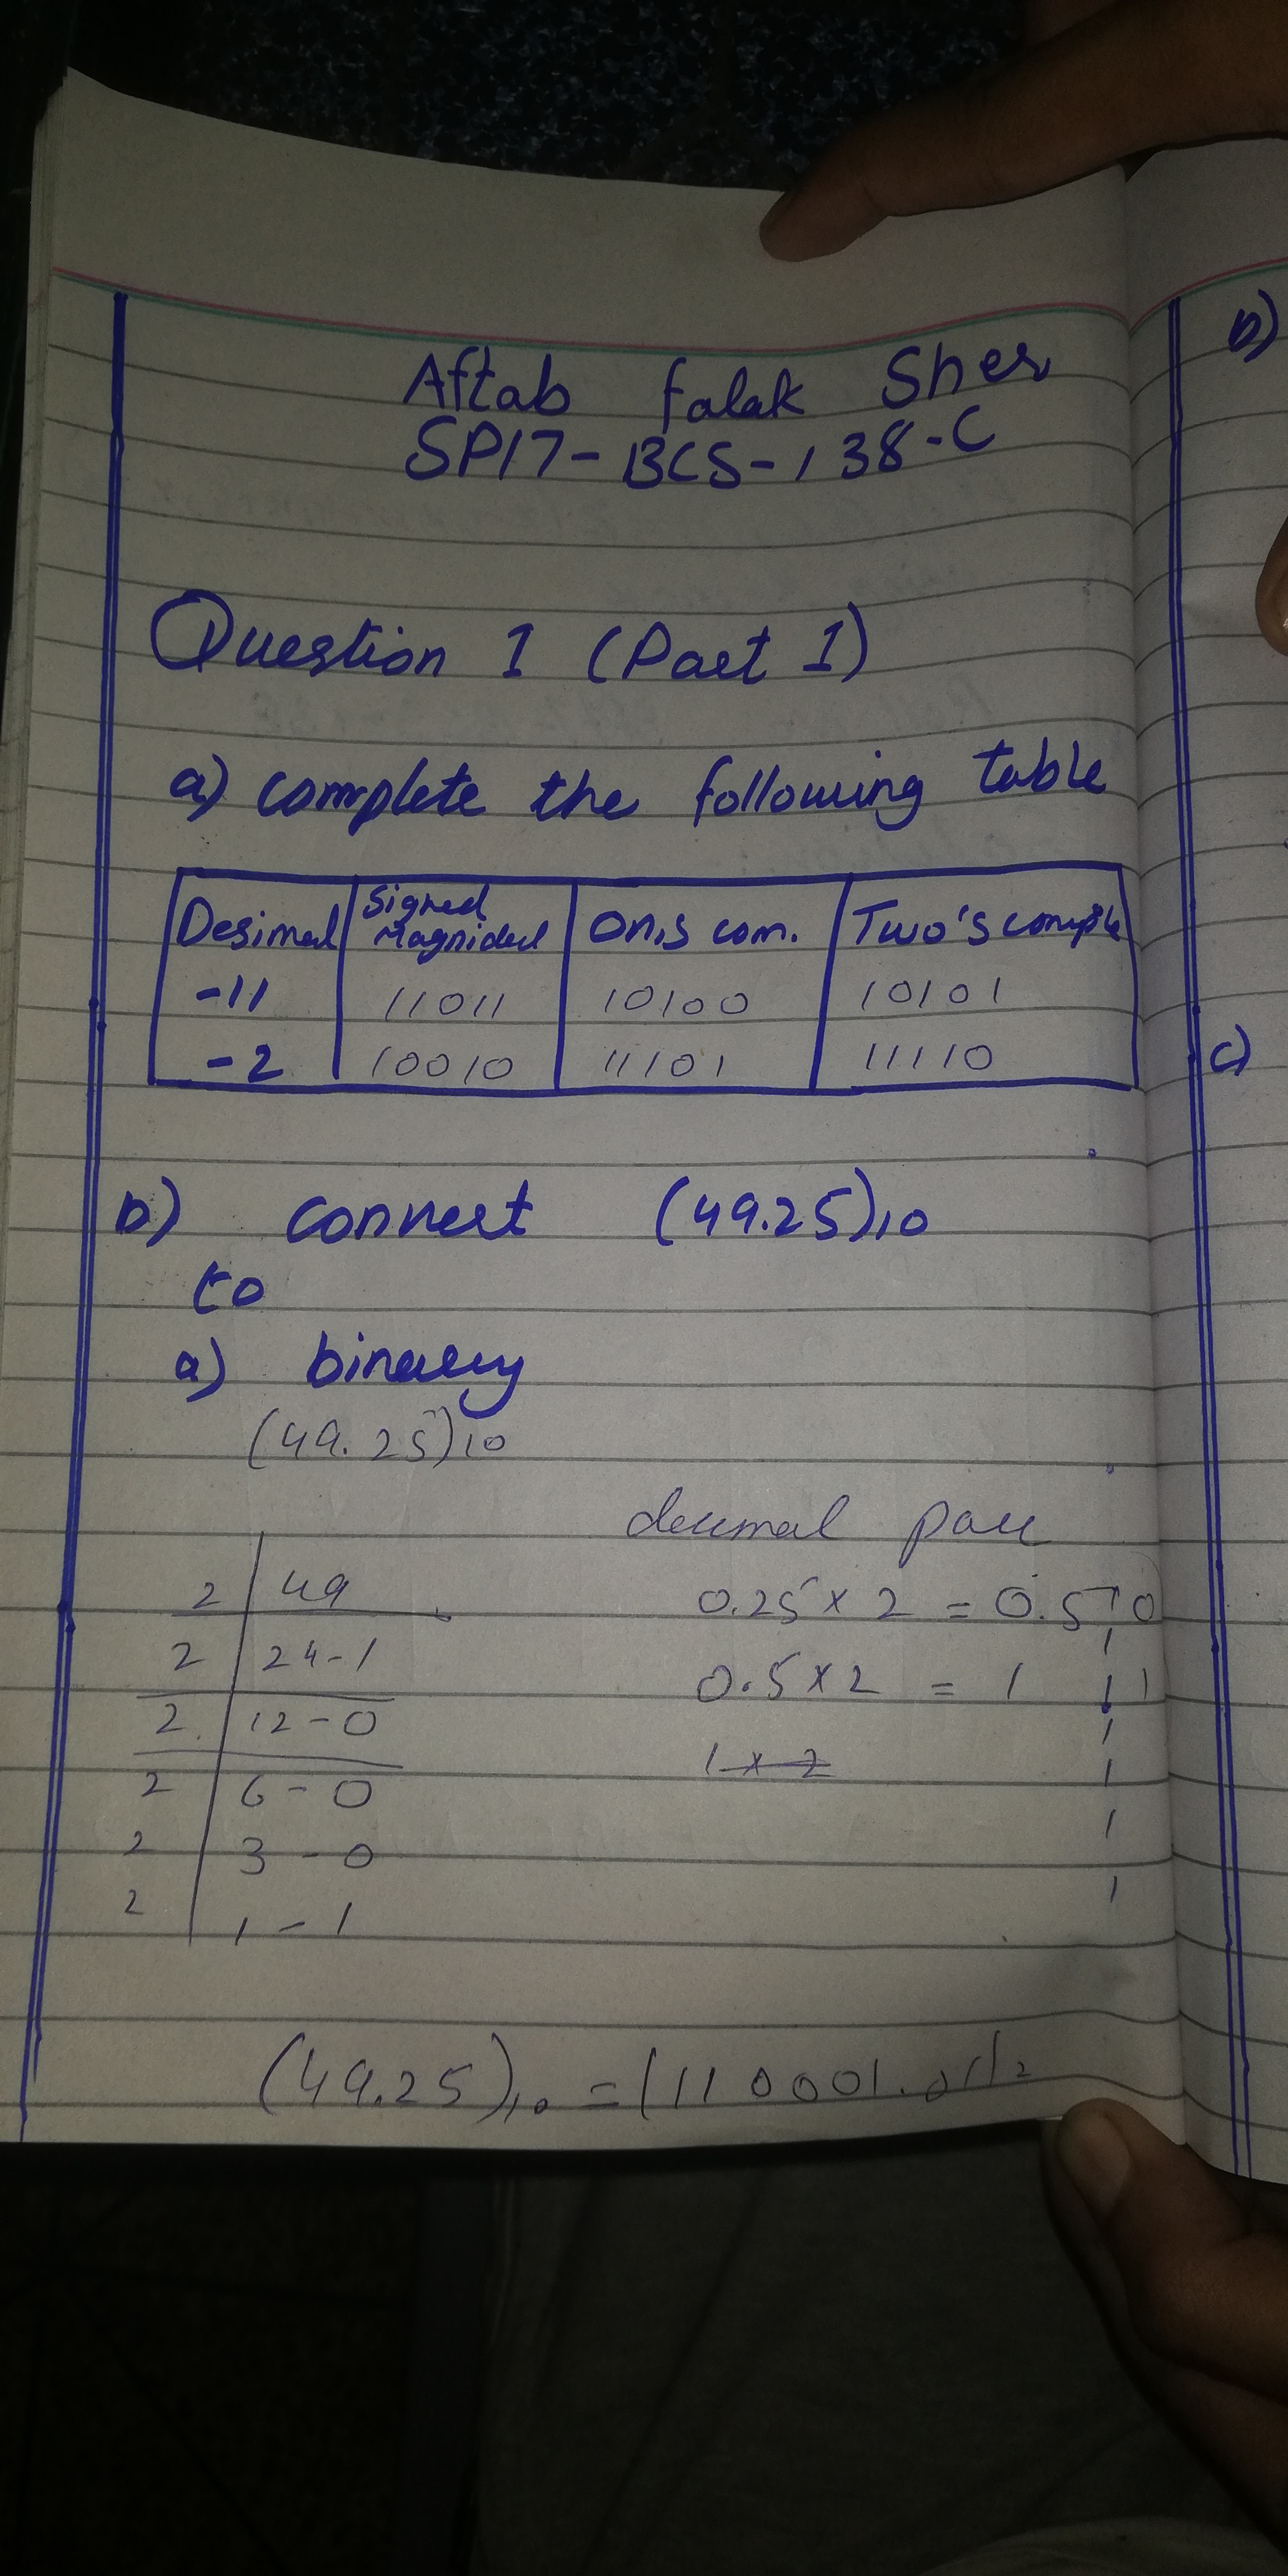 Aftab falak Sher
SP17-BCS-138-C
Question 1 (Part 1)
a) complete the following table
Desimal Signed Magnided On,s com. Two's comple
-11 11011 10100 10101
-2 10010 11101 11110
b) convert (49.25)10
to
a) binary
(49.25)10
decimal part
2 49
2 24-1
2 12-0
2 6-0
2 3-0
2 1-1
0.25 x 2 = 0.5 0
0.5 x 2 = 1 1
1 x 2
(49.25)10 = (110001.01)2
b)
c)